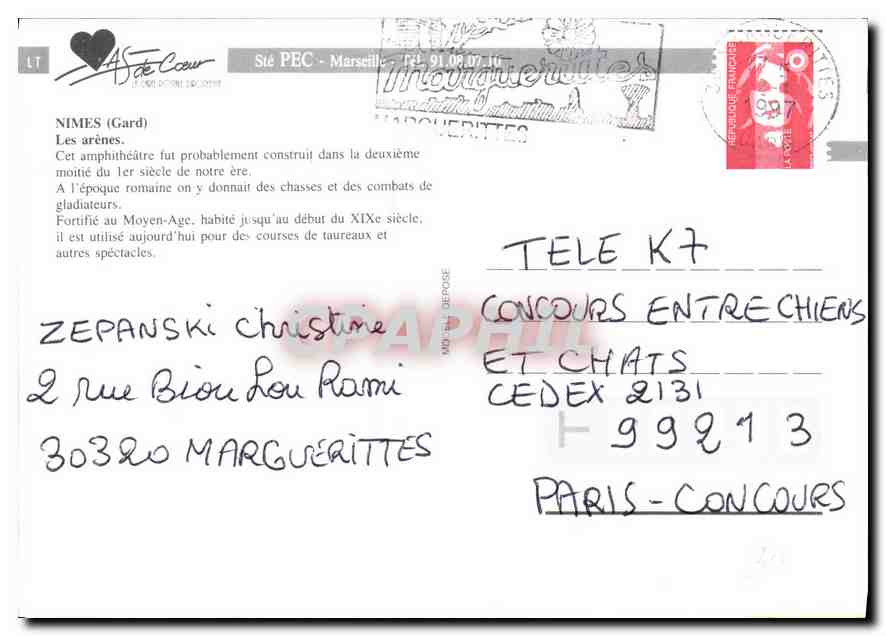 LT
As de Cœur
Sté PEC - Marseille - Tél. 91.08.07.16
Marguerittes
MARGUERITTES
1997
REPUBLIQUE FRANÇAISE
LA POSTE
NIMES (Gard)
Les arènes.
Cet amphithéâtre fut probablement construit dans la deuxième
moitié du 1er siècle de notre ère.
A l'époque romaine on y donnait des chasses et des combats de
gladiateurs.
Fortifié au Moyen-Age, habité jusqu'au début du XIXe siècle,
il est utilisé aujourd'hui pour des courses de taureaux et
autres spéctacles.
MODELE DEPOSE
CPAPHIL
ZEPANSKi Christine
2 rue Biou Lou Rami
30320 MARGUERITTES
TELE K7
CONCOURS ENTRE CHIENS
ET CHATS
CEDEX 2131
99213
PARIS - CONCOURS